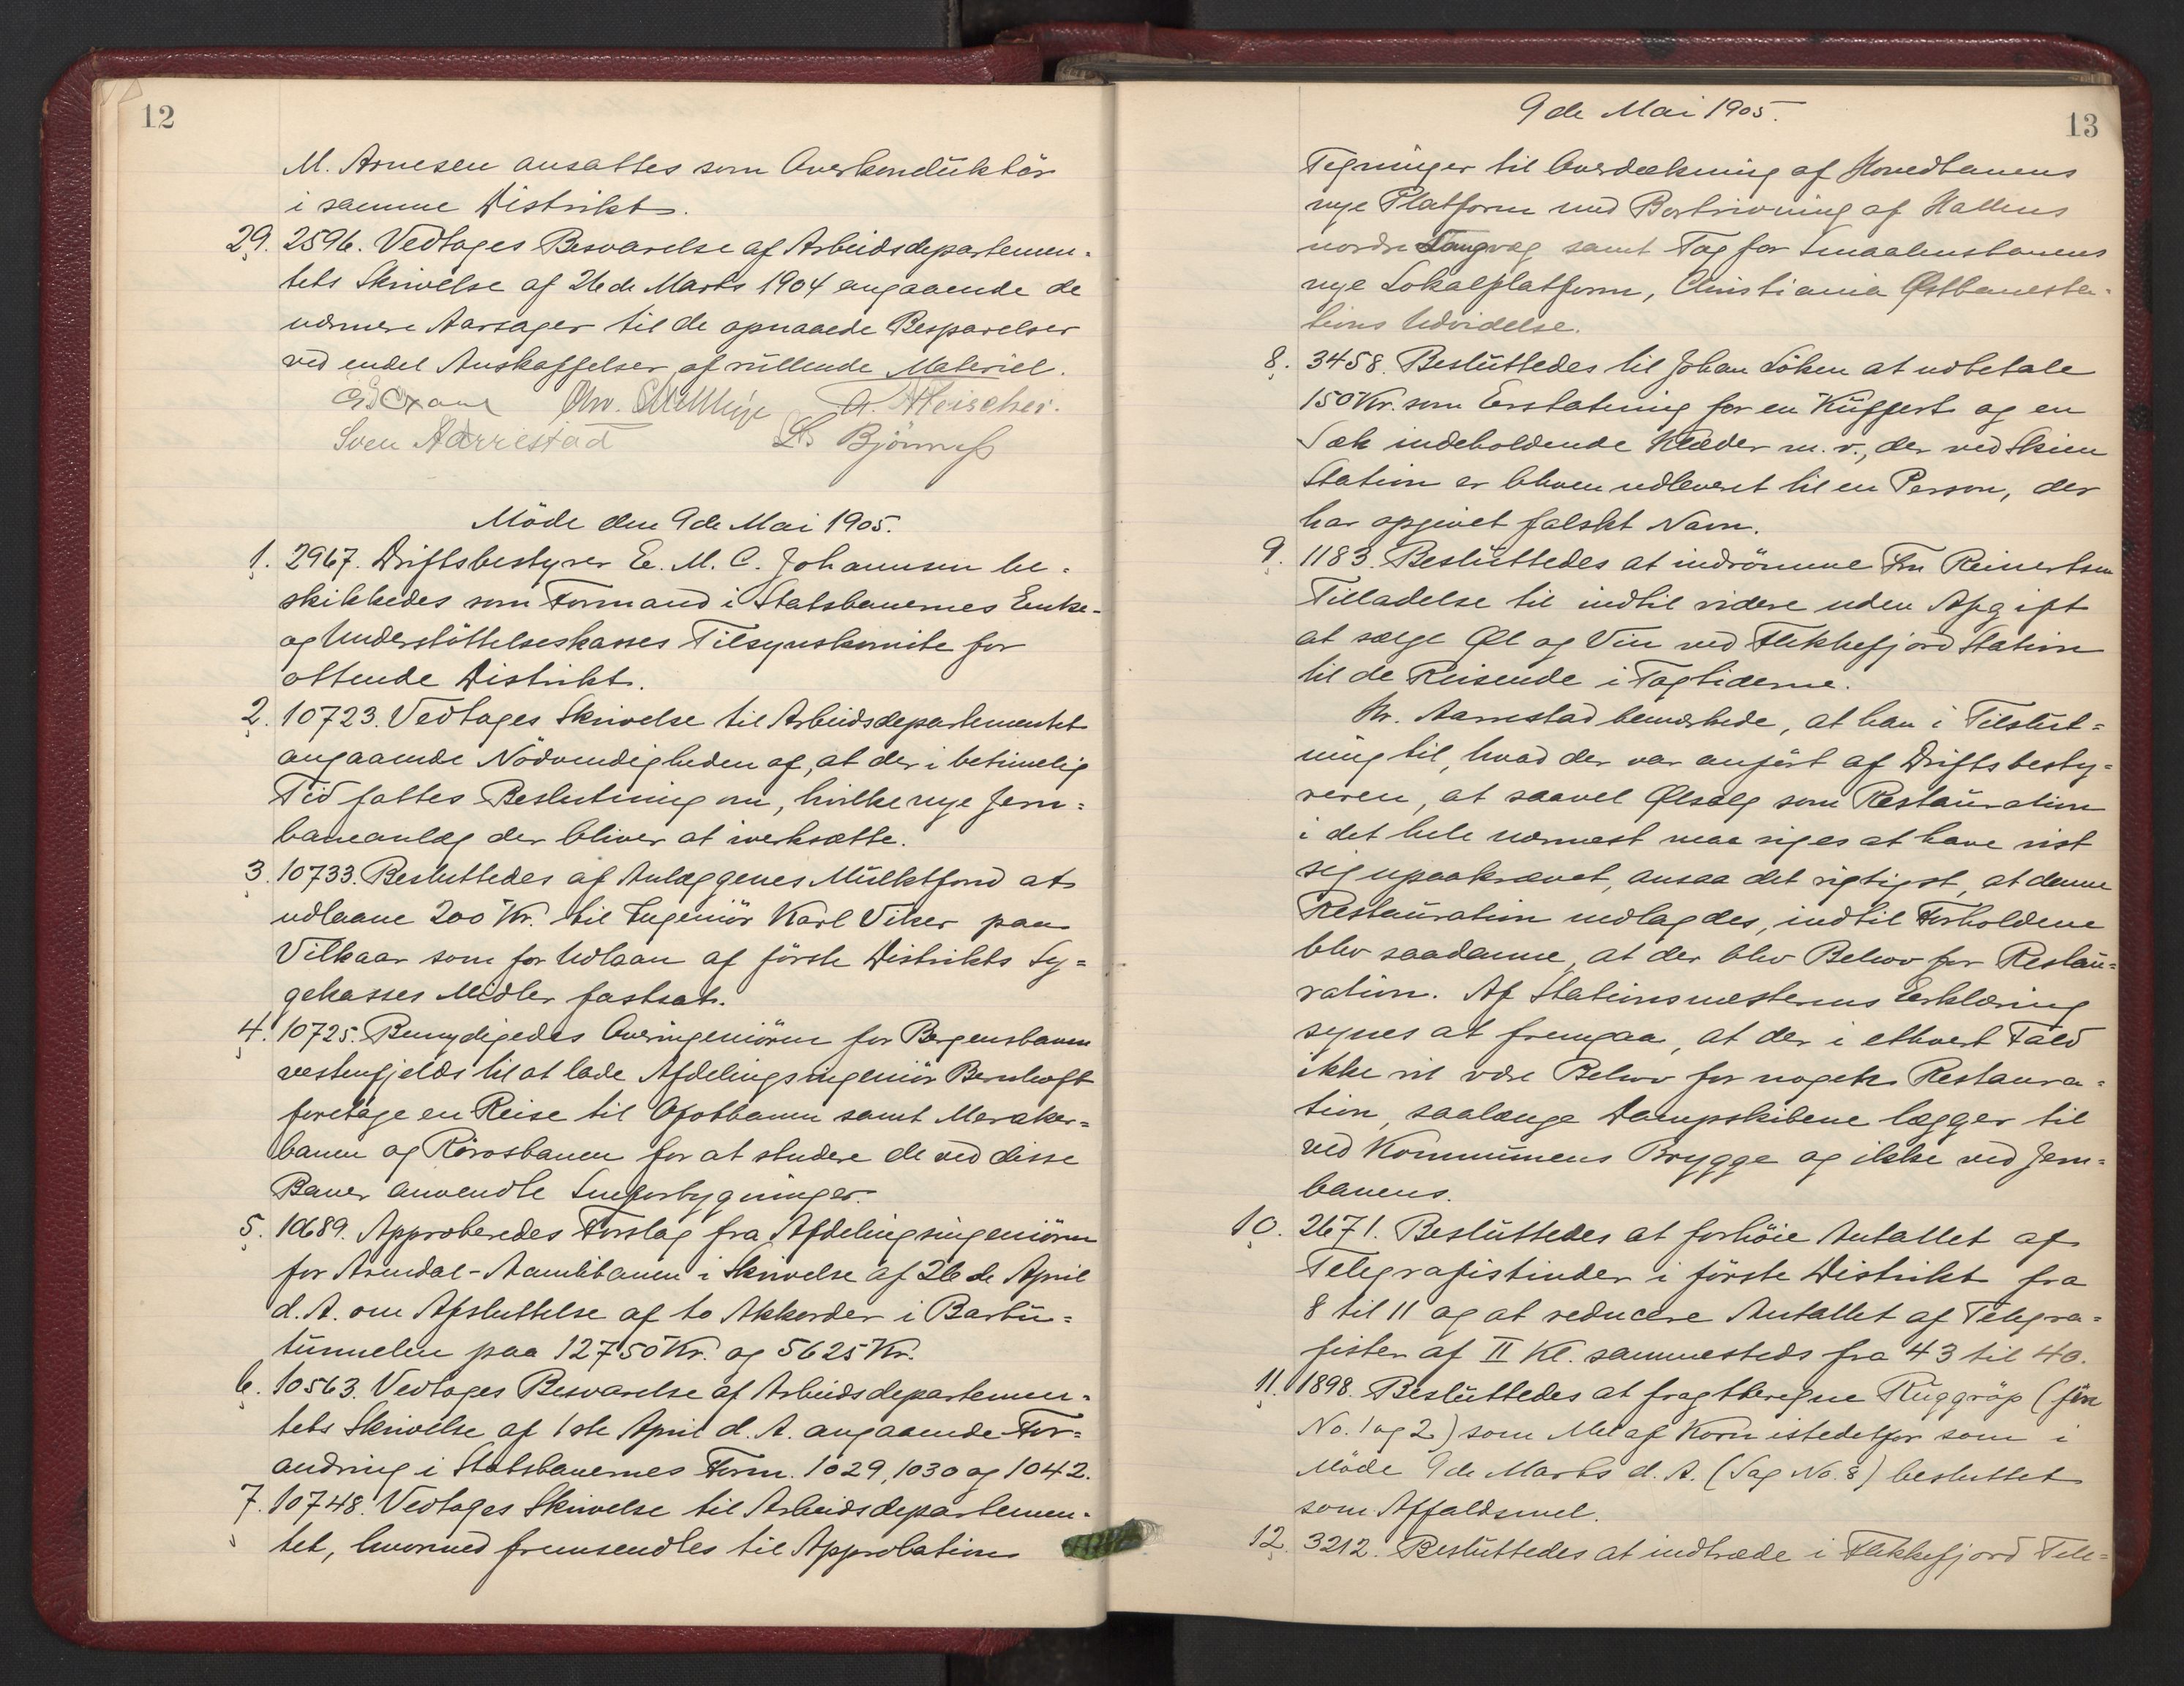 12
M. Arnesen ansattes som Overkonduktör
i samme Distrikt.
29. 2596. Vedtoges Besvarelse af Arbeidsdepartemen-
tets Skrivelse af 26de Marts 1904 angaaende de
nærmere Aarsager til de opnaaede Besparelser
ved endel Anskaffelser af rullende Materiel.
A. Fleischer.
Sven Aarrestad Bjönness
Möde den 9de Mai 1905.
1. 2967. Driftsbestyrer E. M. C. Johannsen be-
skikkedes som Formand i Statsbanernes Enke-
og Understöttelseskasses Tilsynskomite for
ottende Distrikt.
2. 10723. Vedtoges Skrivelse til Arbeidsdepartementet
angaaende Nödvendigheden af, at der i betimelig
Tid fattes Beslutning om, hvilke nye Jern=
baneanlæg der bliver at iverksætte.
3. 10733. Besluttedes af Anlæggenes Mulktfond at
udlaane 200 Kr. til Ingeniör Karl Viker paa
Vilkaar som for Udlaan af förste Distrikts Sy=
gekasses Midler fastsat.
4. 10725. Bemyndigedes Overingeniören for Bergensbanen
vestenfjelds til at lade Afdelingsingeniör Bernhoft
foretage en Reise til Ofotbanen samt Meraker=
banen og Rörosbanen for at studere de ved disse
Baner anvendte Sneforbygninger.
5. 10689. Approberedes Forslag fra Afdelingsingeniören
for Arendal-Aamlibanen i Skrivelse af 26de April
d. A. om Afsluttelse af to Akkorder i Barbu=
tunnelen paa 12750 Kr. og 5625 Kr.
6. 10563. Vedtoges Besvarelse af Arbeidsdepartemen-
tets Skrivelse af 1ste April d. A. angaaende For=
andring i Statsbanernes Form. 1029, 1030 og 1042.
7. 10748. Vedtoges Skrivelse til Arbeidsdepartemen-
tet, hvormed fremsendtes til Approbation
9de Mai 1905.
13
Tegninger til Overdækning af Hovedbanens
nye Platform med Bortrivning af Hallens
nordre Langvæg samt Tag for Smaalensbanens
nye Lokalplatform, Christiania Østbanesta-
tions Udvidelse.
8. 3458. Besluttedes til Johan Löken at udbetale
150 Kr. som Erstatning for en Kuffert og en
Sæk indeholdende Klæder m. v., der ved Skien
Station er bleven udleveret til en Person, der
har opgivet falskt Navn.
9. 1183. Besluttedes at indrömme Fru Reinertsen
Tilladelse til indtil videre uden Afgift
at sælge Øl og Vin ved Flekkefjord Station
til de Reisende i Togtiderne.
Hr. Aarrestad bemærkede, at han i Tilslut=
ning til, hvad der var anfört af Driftsbesty=
reren, at saavel Ølsalg som Restauration
i det hele nærmest maa siges at have vist
sig upaakrævet, ansaa det rigtigst, at denne
Restauration nedlagdes, indtil Forholdene
blev saadanne, at der blev Behov for Restau=
ration. Af Stationsmesterens Erklæring
synes at fremgaa, at der i ethvert Fald
ikke vil være Behov for nogen Restaura=
tion, saalænge Dampskibene lægger til
ved Kommunens Brygge og ikke ved Jern=
banens.
10. 2671. Besluttedes at forhöie Antallet af
Telegrafistinder i förste Distrikt fra
8 til 11 og at reducere Antallet af Telegra=
fister af II Kl. sammesteds fra 43 til 40.
11. 1898. Besluttedes at fragtberegne Ruggröp (fin
No. 1 og 2) som Mel af Korn istedetfor som i
Möde 9de Marts d. A. (Sag No. 8) besluttet
som Affaldsmel.
12. 3212. Besluttedes at indtræde i Flekkefjord Tele=